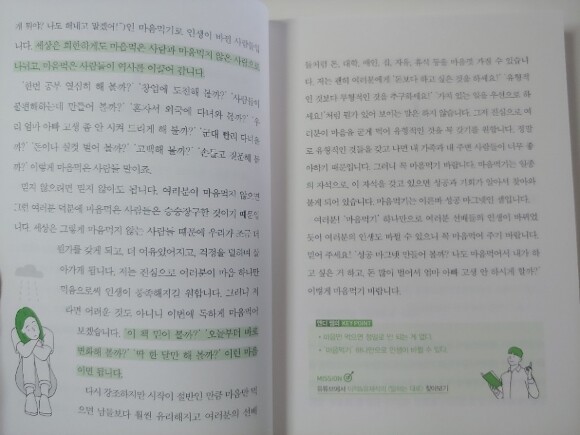 게 뭐야? 나도 해내고 말겠어!")인 마음먹기로 인생이 바뀐 사람들입
니다. 세상은 희한하게도 마음먹은 사람과 마음먹지 않은 사람으로
나뉘고, 마음먹은 사람들이 역사를 이끌어 갑니다.
'한번 공부 열심히 해 볼까?' '창업에 도전해 볼까?' '사람들이
불편해하는데 만들어 볼까?' '혼자서 외국에 다녀와 볼까?' '우
리 엄마 아빠 고생 좀 안 시켜 드리게 해 볼까?' '군대 빨리 다녀올
까?' '돈이나 실컷 벌어 볼까?' '고백해 볼까?' '손잡고
볼까?' 이렇게 마음먹은 사람들 말이죠.
믿지 않으려면 믿지 않아도 됩니다. 여러분이 마음먹지 않으면
그런 여러분 덕분에 마음먹은 사람들은 승승장구한 것이기 때문입
니다. 세상은 그렇게 마음먹지 않는 사람들 때문에 우리가 조금 더
뭔가를 갖게 되고, 더 여유있어지고, 걱정을 덜하며 살
아가게 됩니다. 저는 진심으로 여러분이 마음 하나만
먹음으로써 인생이 풍족해지길 원합니다. 그러니 하
다면 어려운 것도 아니니 이번에 독하게 마음먹어
보겠습니다. '이 책 읽어 볼까?' '오늘부터 바로
변화해 볼까?' '딱 한 달만 해 볼까?' 이런 마음
이면 됩니다.
다시 강조하지만 시작이 절반인 만큼 마음만 먹
으면 남들보다 훨씬 유리해지고 여러분의 선배
들처럼 돈, 대학, 애인, 집, 자유, 휴식 등을 마음껏 가질 수 있습니
다. 저는 괜히 여러분에게 '돈보다 하고 싶은 것을 하세요!' '유형적
인 것보다 무형적인 것을 추구하세요!' '가치 있는 일을 우선으로 하
세요!'처럼 뭔가 있어 보이는 감은 하지 않습니다. 그저 진심으로 여
러분이 마음을 굳게 먹어 유형적인 것을 꼭 갖기를 원합니다. 정말
로 유형적인 것들을 갖고 나면 내 가족과 내 주변 사람들이 너무 좋
아하기 때문입니다. 그러니 꼭 마음먹기 바랍니다. 마음먹기는 일종
의 자석으로, 이 자석을 갖고 있으면 성공과 기회가 알아서 찾아와
붙게 되어 있습니다. 마음먹기는 여러분 성공 마그네틱인 셈입니다.
여러분! '마음먹기' 하나만으로 여러분 선배들의 인생이 바뀌었
듯이 여러분의 인생도 바뀔 수 있으니 꼭 마음먹어 주기 바랍니다.
믿어 주세요! '성공 마그넷 만들어 볼까? 나도 마음먹어서 내가 하
고 싶은 거 하고, 돈 많이 벌어서 엄마 아빠 고생 안 하시게 할까?'
이렇게 마음먹기 바랍니다.
• 마음만 먹으면 정말로 안 되는 게 없다.
• '마음먹기' 하나만으로 인생이 바뀔 수 있다.
MISSION